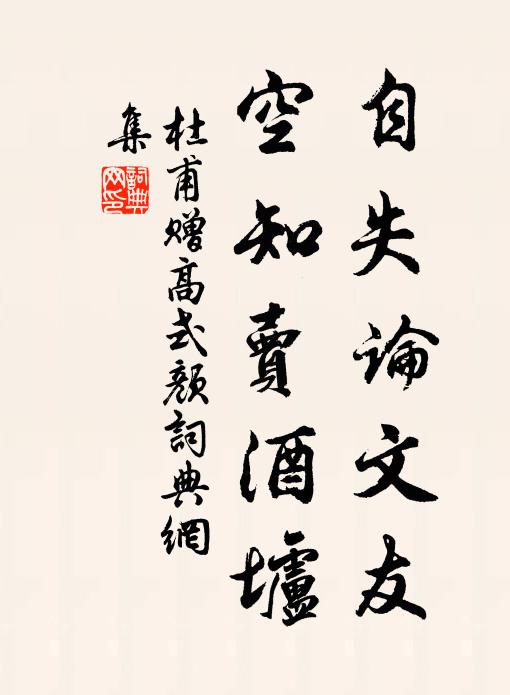 自失論文友
空知賣酒壚
杜甫贈高式顏詞典網
集
詞典網印